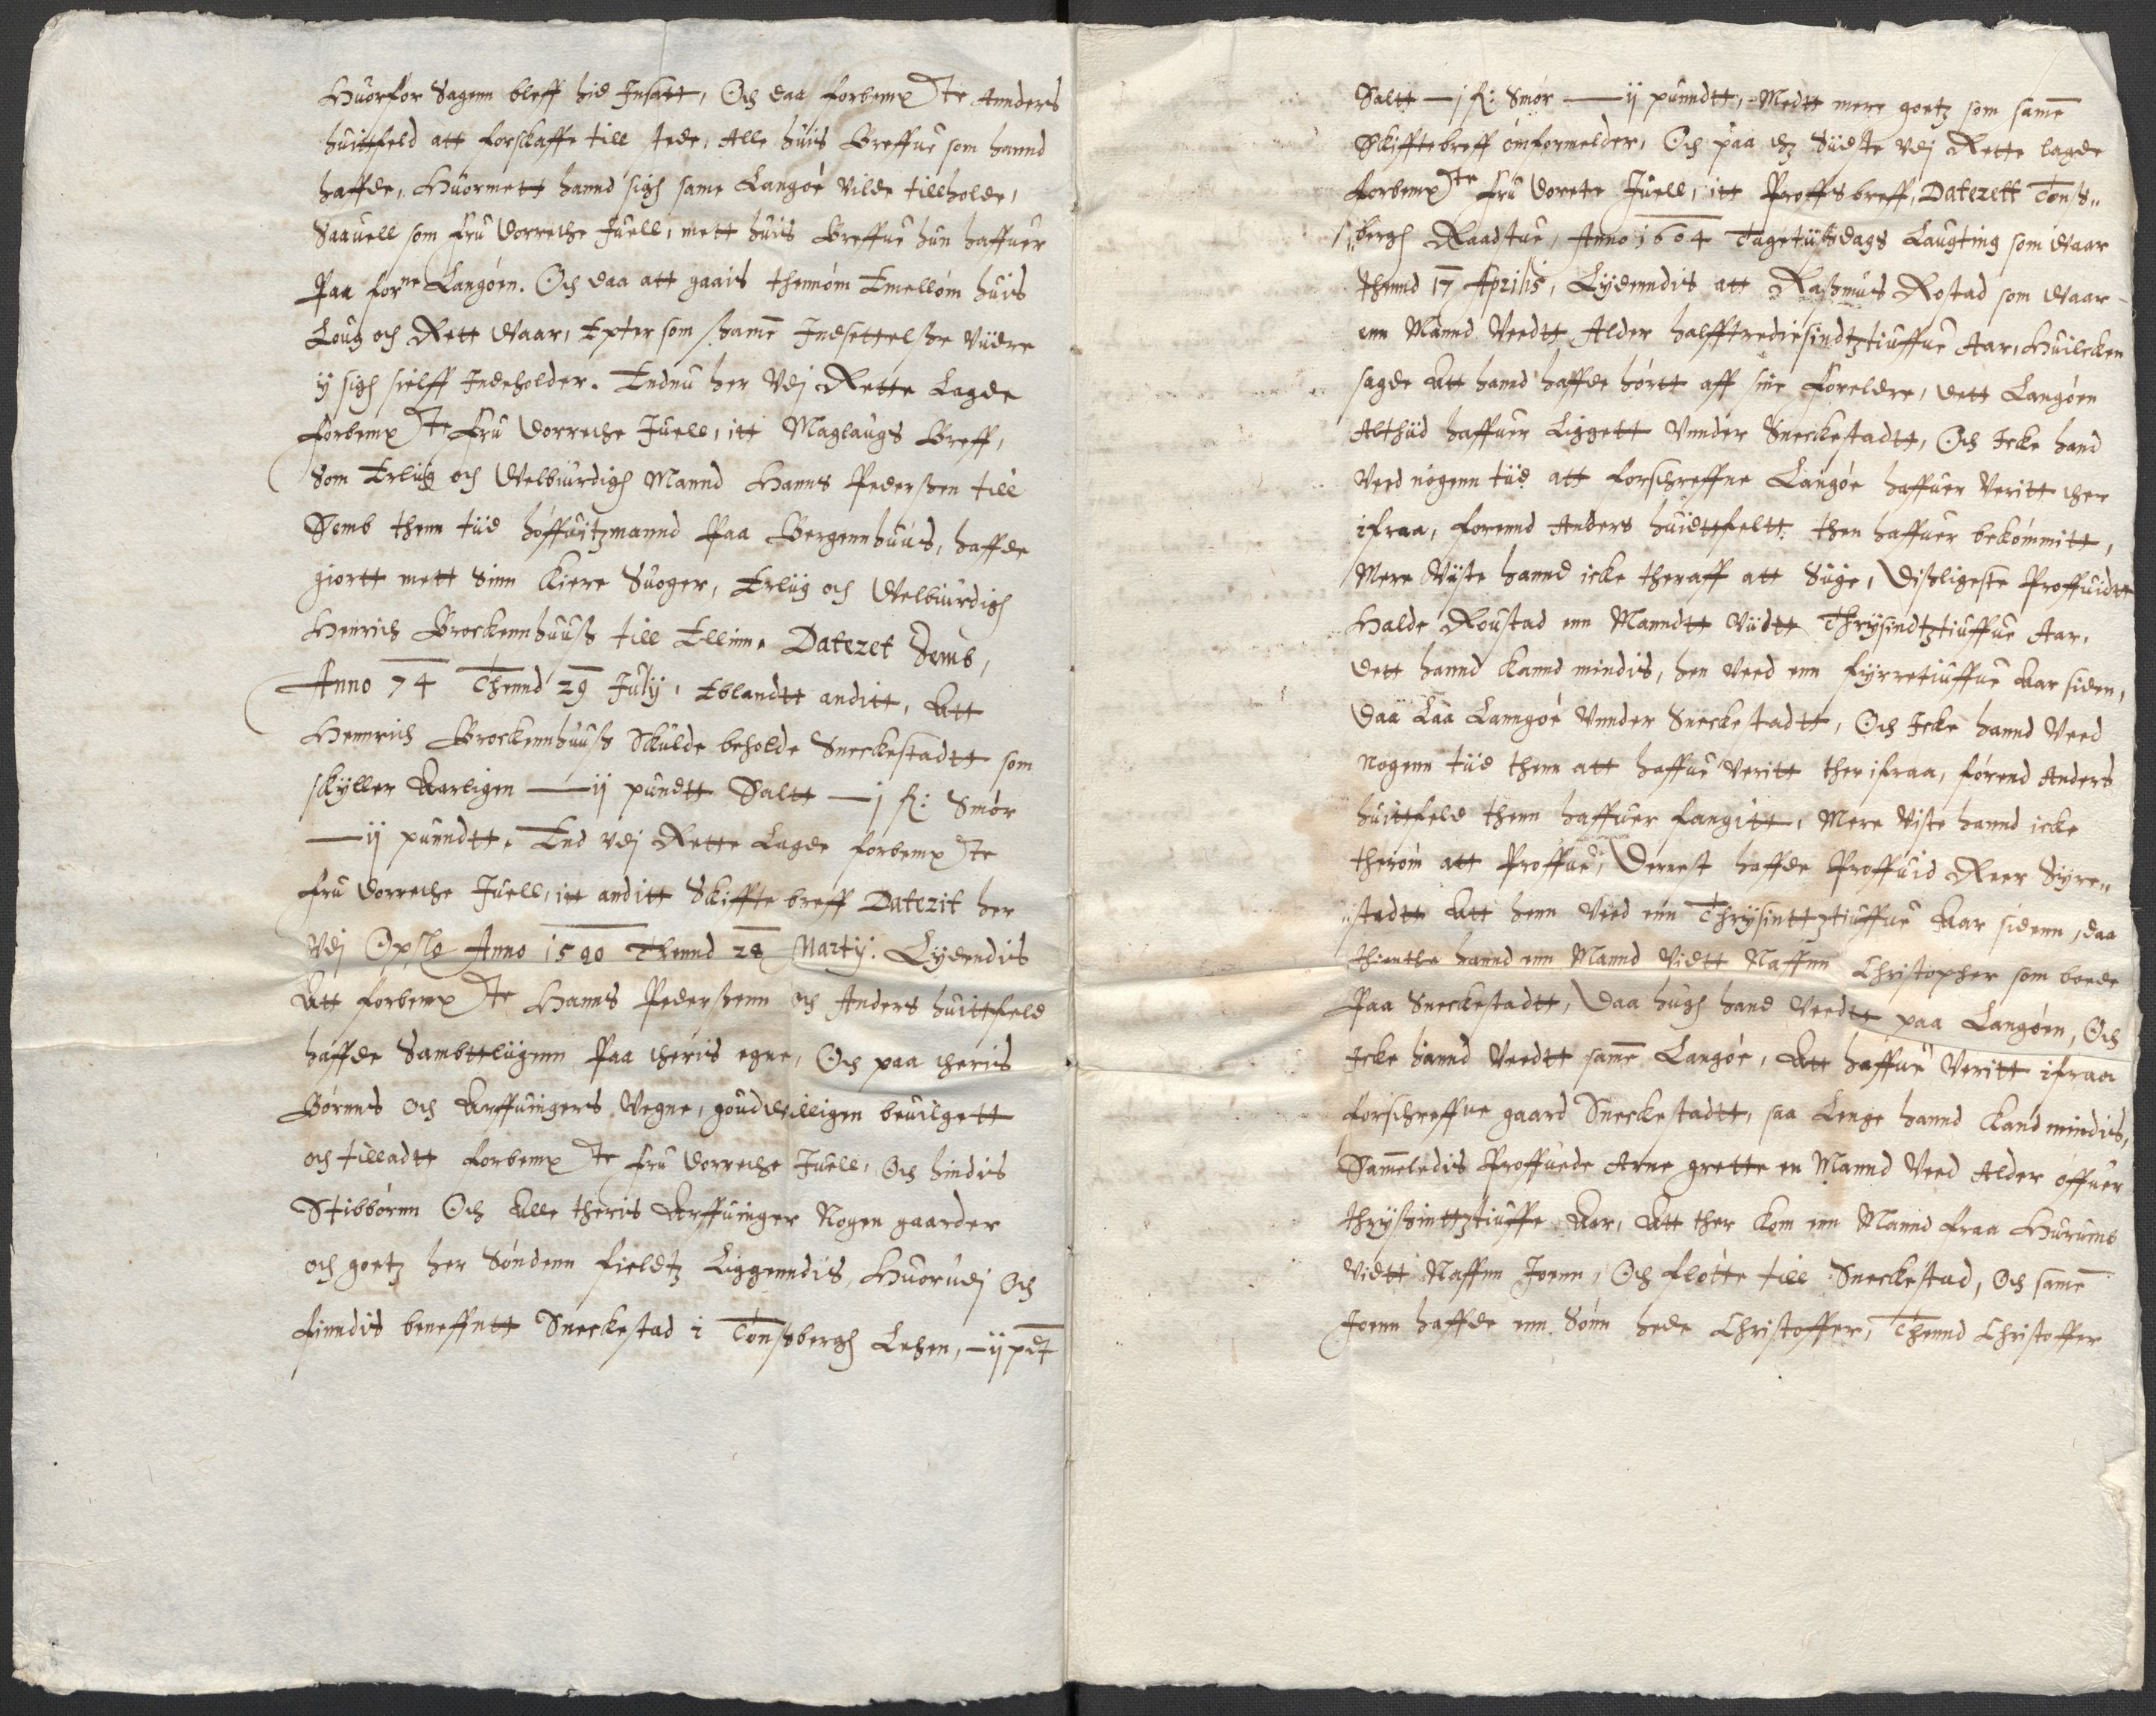 Huorfor Sagenn bleff hid Indsatt, Och daa forbemeltte Annders
huittfeld att forskaffe till stede, Alle huis Breffue som hannd
haffde, Huormett hannd sigh same Langøe vilde tillholde,
Saauell som fru Dorrethe Juell, mett huis Breffue hun haffuer
Paa forne Langøen. Och daa att gaais thennom Emellom huis
Loug och Rett Waar, Epter som same Indsettelsse vidre
ÿ sigh sielff Indeholder. Endnu her Vdj Rette Lagde
forbemeltte Fru Dorrethe Juell, itt Maglaugs Breff,
Som Erlig och Welbiurdigh Mannd Hanns Pederssen till
Semb thenn tiid høffuitzmannd Paa Bergennhuus, haffde
giortt mett Sinn Kiere Suoger, Erlig och Welbiurdigh
Henrich Brockennhuuss till Ellinn. Dateret Semb,
Anno 74 Thennd 29 Julÿ, Eblandtt anditt, Att
Hennrich Brockennhuuss Skulde beholde Sneckestadtt som
skyller Aarligen — ij pundtt Saltt — j f: Smør
— ij punndtt. End vdj Rette Lagde forbemeltte
fru Dorrethe Juell, itt anditt Skifftebreff Daterit her
Vdj Opslo Anno 1590 Thennd 28 Martÿ. Lydendis
Att forbemeltte Hanns Pederssenn och Anders huittfeld
haffde Sambttligenn Paa theris egne, Och paa theris
Børnns Och Arffuingers Vegne, goudwilligen beuilgett
och tilladtt forbemeltte fru Dorrethe Juell, Och hindis
Stibbørnn Och Alle theris Arffuinger Nogen gaarder
och goetz her Søndenn fieldtz Liggenndis, Huorudj Och
finndis beneffntt Sneckestad i Tonssbergh Lehen, — ij pdt
Saltt — j f: Smør — ij punndtt, Medtt mere goetz som same
Skifftebreff omformelder, Och paa dz Sidste Vdj Rette lagde
forbemeltte fru Dorete Juell, itt Proffs breff, Daterett Tons„
„bergh Raadstue, Anno 1604 Tagetiisdags Laugting som Waar
thennd 17 Aprilis, Lydenndis att Rassmus Rostad som Waar
enn Mannd Veedtt Alder halfftrediesindtztiuffue Aar, Huilcken
sagde Att hannd haffde hørtt aff sine Foreldre, dett Langøen
Althiid haffuer Liggett Vnnder Sneckestadtt, Och Icke hand
Veed nogenn tiid att forschreffne Langøe haffuer Veritt ther
ifraa, forennd Anders huidtfeltt then haffuer bekommitt,
Mere Viste hannd icke theraff att Siige, Disligeste Proffuidtt
Halde Roustad enn Manndtt Viidtt Thrysindtztiuffue Aar,
dett hannd Kannd mindis, hen Veed enn fyrretiuffue Aar siden,
daa Laa Lanngøe Vnnder Sneckestadtt, Och Icke hannd Veed
Nogenn tiid thenn att haffue Veritt ther ifraa, førend Anders
huittfeld thenn haffuer fangitt, Mere Viste hannd icke
therom att Proffue, Dernest haffde Proffuid Reer Syre„
„stadtt Att henn Veed enn Thrysinttztiuffue Aar sidenn, daa
thientte hannd enn Mannd Vidtt Naffnn Christopher som boede
Paa Sneckestadtt, Daa hugh hand Veedtt paa Langøen, Och
Icke hannd Veedtt same Langøe, Att haffue Veritt ifraa
forschreffne gaard Sneckestadtt, saa Lenge hannd Kand mindis,
Sameledis Proffuede Arne grette en Mannd Veed Alder offuer
thryssinttztiuffe Aar, Att ther Kom enn Mannd fraa Hurumb
Vidtt Naffnn Joenn, Och fløtte till Sneckestad, Och same
Joenn haffde enn Sønn hede Christoffer, Thennd Christoffer